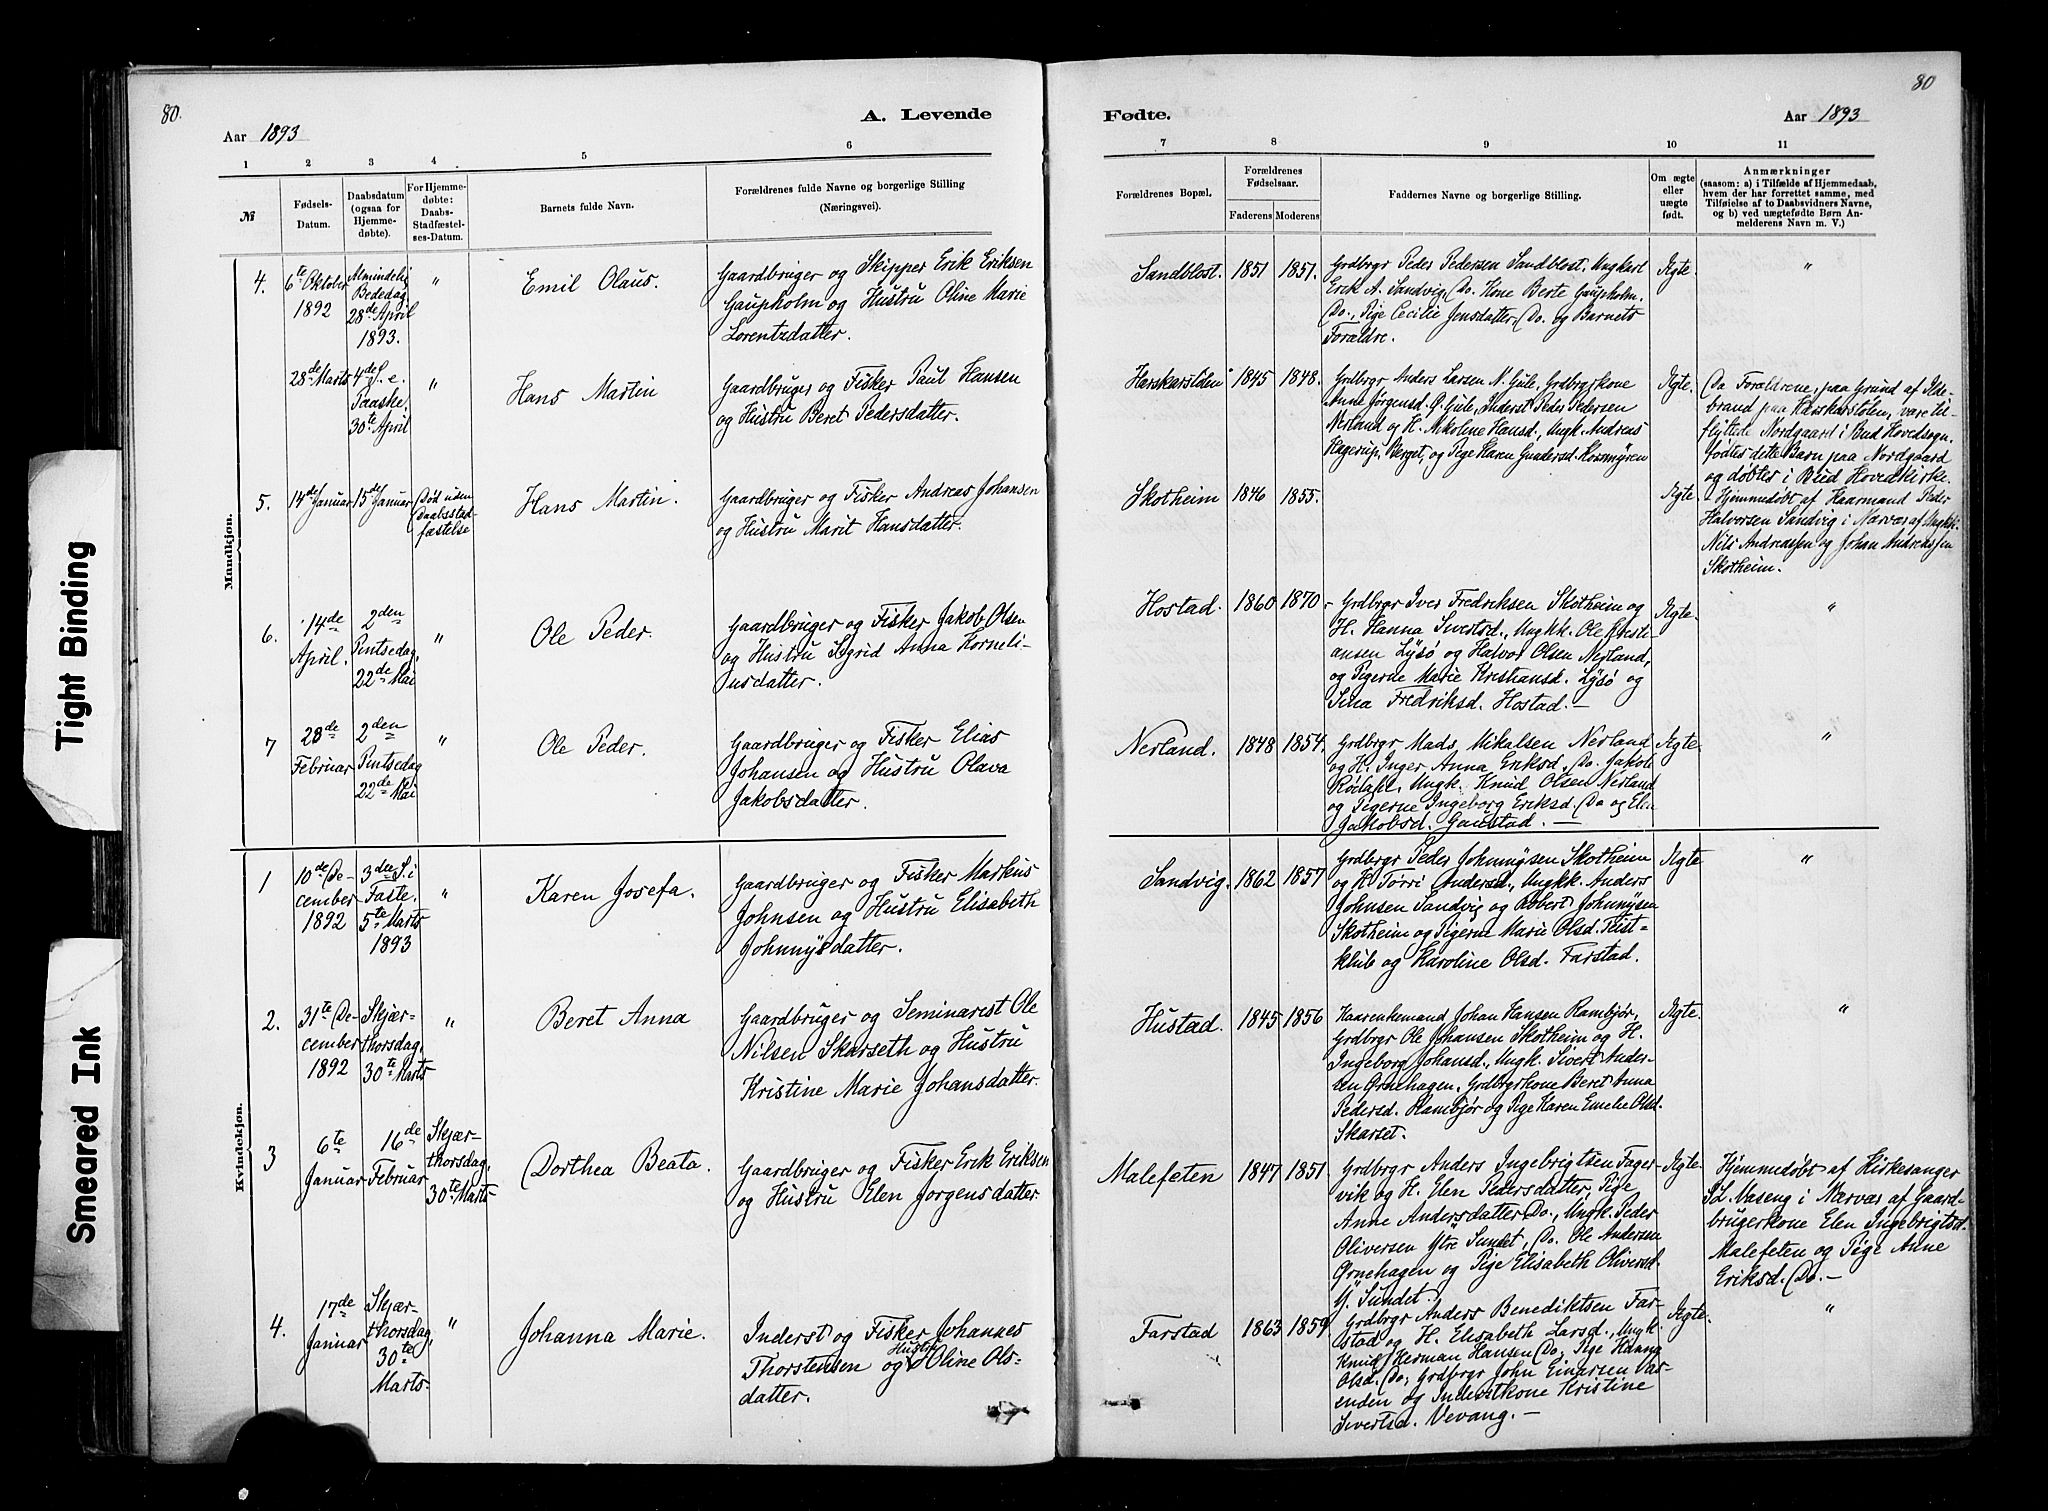 80.
A. Levende
Aar 1893
1 2 3 4 5 6
№
Fødsels-
Datum.
Daabsdatum
(ogsaa for
Hjemme-
døbte).
For Hjemme-
døbte:
Daabs-
Stadfæstel-
ses-Datum.
Barnets fulde Navn.
Forældrenes fulde Navne og borgerlige Stilling
(Næringsvei).
Mandkjøn.
4.
6te Oktober
1892
Almindelig
Bededag
28de April
1893.
"
Emil Olaus.
Gaardbruger og Skipper Erik Eriksen
Gaupholm og Hustru Oline Marie
Lorentzdatter.
28de Marts
4de S. e.
Paaske
30te April
"
Hans Martin
Gaardbruger og Fisker Paul Hansen
og Hustru Beret Pedersdatter.
5.
14de Januar
15de Januar
Død uden
Daabsstad-
fæstelse
Hans Martin.
Gaardbruger og Fisker Andreas Johansen
og Hustru Marit Hansdatter.
6.
14de
April.
2den
Pintsedag,
22de Mai
"
Ole Peder.
Gaardbruger og Fisker Jakob Olsen
og Hustru Sigrid Anna Korneli-
usdatter.
7
28de
Februar
2den
Pintsedag
22de Mai
"
Ole Peder.
Gaardbruger og Fisker Elias
Johansen og Hustru Olava
Jakobsdatter.
Kvindekjøn.
1
10de De-
cember
1892
3die S. i
Faste.
5te Marts
1893
"
Karen Josefa.
Gaardbruger og Fisker Markus
Johnsen og Hustru Elisabeth
Johnnysdatter.
2.
31te De-
cember
1892
Skjær-
thorsdag,
30te Marts
"
Beret Anna
Gaardbruger og Seminarist Ole
Nilsen Skarseth og Hustru
Kristine Marie Johansdatter.
3
6te
Januar
16de
Februar
Skjær-
thorsdag,
30te Marts
Dorthea Beata.
Gaardbruger og Fisker Erik Eriksen
og Hustru Elen Jørgensdatter
4.
17de
Januar
Skjær-
thorsdag,
30te
Marts.
"
Johanna Marie.
Inderst og Fisker Johannes
Thorstensen og Hustru Oline Ols-
datter.
80
Fødte.
Aar 1893
7 8 9 10 11
Forældrenes Bopæl.
Forældrenes
Fødselsaar.
Faderens
Moderens
Faddernes Navne og borgerlige Stilling.
Om ægte
eller
uægte
født.
Anmærkninger
(saasom: a) i Tilfælde af Hjemmedaab,
hvem der har forrettet samme, med
Tilføielse af to Daabsvidners Navne,
og b) ved uægtefødte Børn An-
melderens Navn m. V.)
Sandblost.
1851
1851.
Grdbrgr Peder Pedersen Sandblost, Ungkarl
Erik A. Sandvig, Do. Kone Berte Gaupholm.
Do., Pige Cecilie Jensdatter, Do. og Barnets
Forældre.
Ægte.
"
Harskarstolen
1845
1848.
Grdbrgr Anders Larsen N. Gule, Grdbrgrkone
Anne Jørgensd. Ø. Gule, Inderst Peder Pedersen
Nerland og H. Nikoline Hansd., Ungk. Andreas
Hagerup, Berget, og Pige Karen Gundersd. Kornmyren
Ægte.
Da Forældrene, paa Grund af Ilde-
brand paa Harskarstolen, vare til-
flyttede Nordgaard i Bud Hovedsogn,
fødtes dette Barn paa Nordgaard
og døbtes i Bud Hovedkirke.
Skotheim
1846
1855.
Ægte
Hjemmedøbt af Kaarmand Peder
Halvorsen Sandvig i Nærvær af Ungkk.
Nils Andreassen og Johan Andreassen
Skotheim.
Hostad.
1860
1870
Grdbrgr Iver Fredriksen Skotheim og
H. Hanna Sivertsd., Ungkk. Ole Kristi-
ansen Lysø og Halvor Olsen Nerland,
og Pigerne Marie Kristiansd. Lysø og
Sina Fredriksd. Hostad.—
Ægte.
"
Nerland.
1848
1854.
Grdbrgr Mads Mikalsen Nerland
og H. Inger Anna Eriksd., Do. Jakob
Ungk. Knud Olsen Nerland
og Pigerne Ingeborg Eriksd. Do og Elen
Jakobsd. Gaustad.—
Ægte.
"
Sandvig.
1862
1857
Grdbrgr Peder Johnnysen Skotheim
og H. Torri Andersd., Ungkk. Anders
Johnsen Sandvig og Robert Johnnysen
Skotheim og Pigerne Marie Olsd. Teist-
klub og Karoline Olsd. Farstad.
Ægte.
"
Hustad.
1845
1856
Kaarenkemand Johan Hansen Rambjør,
Grdbrgr Ole Johansen Skotheim og H.
Ingeborg Johansd., Ungk. Sivert Ander-
sen Ørnehagen, Grdbrgrkone Beret Anna
Pedersd. Rambjør og Pige Karen Emelie Olsd.
Skarset.
Ægte.
"
Malefeten
1847
1851
Grdbrgr Anders Ingebrigtsen Fager-
vik og H. Elen Pedersdatter, Pige
Anne Andersdatter Do., Ungk. Peder
Oliversen Ytre Sundet, Do. Ole Andersen
Ørnehagen og Pige Elisabeth Oliversd.
Y. Sundet.
Ægte.
Hjemmedøbt af Kirkesanger
Vaseng i Nærvær af Gaard-
brugerkone Elen Ingebrigtsd.
Malefeten og Pige Anne
Eriksd. Do.—
Farstad
1863
1859
Grdbrgr Anders Benediktsen Far-
stad og H. Elisabeth Larsd., Ungk.
Knud Herman Hansen Do; Pige
Olsd. Do; Grdbrgr John Einarsen Vas-
enden og Inderstkone Kristine
Sivertsd. Vevang.—
Ægte.
"
Tight Binding
Smeared Ink